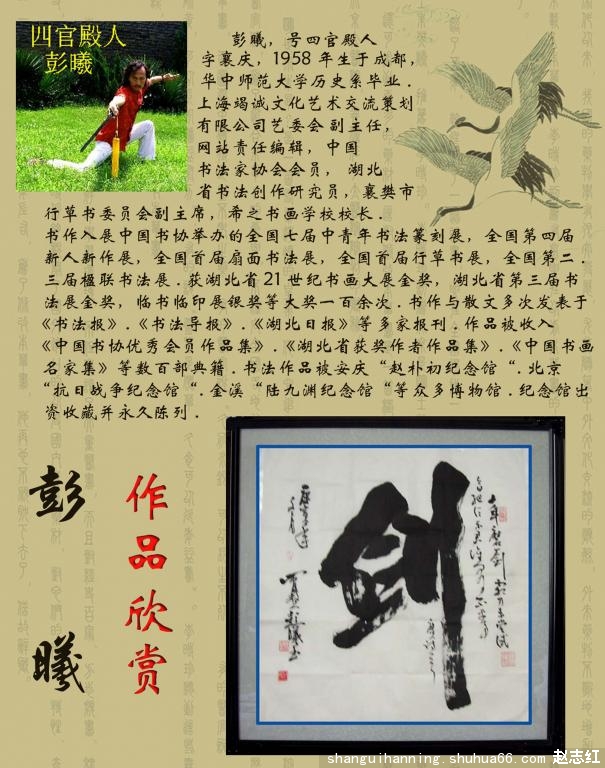 四官殿人
彭曦
彭曦，号四官殿人
字襄庆，1958 年生于成都，
华中师范大学历史系毕业．
上海竭诚文化艺术交流策划
有限公司艺委会副主任，
网站责任编辑，中国
书法家协会会员， 湖北
省书法创作研究员，襄樊市
行草书委员会副主席，希之书画学校校长．
书作入展中国书协举办的全国七届中青年书法篆刻展，全国第四届
新人新作展，全国首届扇面书法展，全国首届行草书展，全国第二．
三届楹联书法展．获湖北省 21 世纪书画大展金奖，湖北省第三届书
法展金奖，临书临印展银奖等大奖一百余次．书作与散文多次发表于
《书法报》．《书法导报》．《湖北日报》等多家报刊．作品被收入
《中国书协优秀会员作品集》．《湖北省获奖作者作品集》．《中国书画
名家集》等数百部典籍．书法作品被安庆“赵朴初纪念馆“．北京
“抗日战争纪念馆“．金溪“陆九渊纪念馆“等众多博物馆．纪念馆出
资收藏并永久陈列．
彭曦
作品欣赏
剑
十年磨剑
shanguihanning.shuhua66.com 赵志红